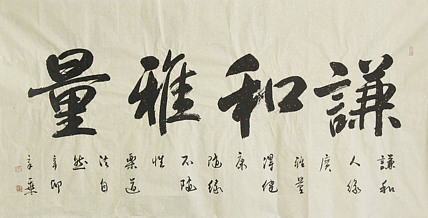 謙和雅量
謙和
人緣
廣
雅量
得健
康
隨緣
不隨
性
道
法自
然
辛卯